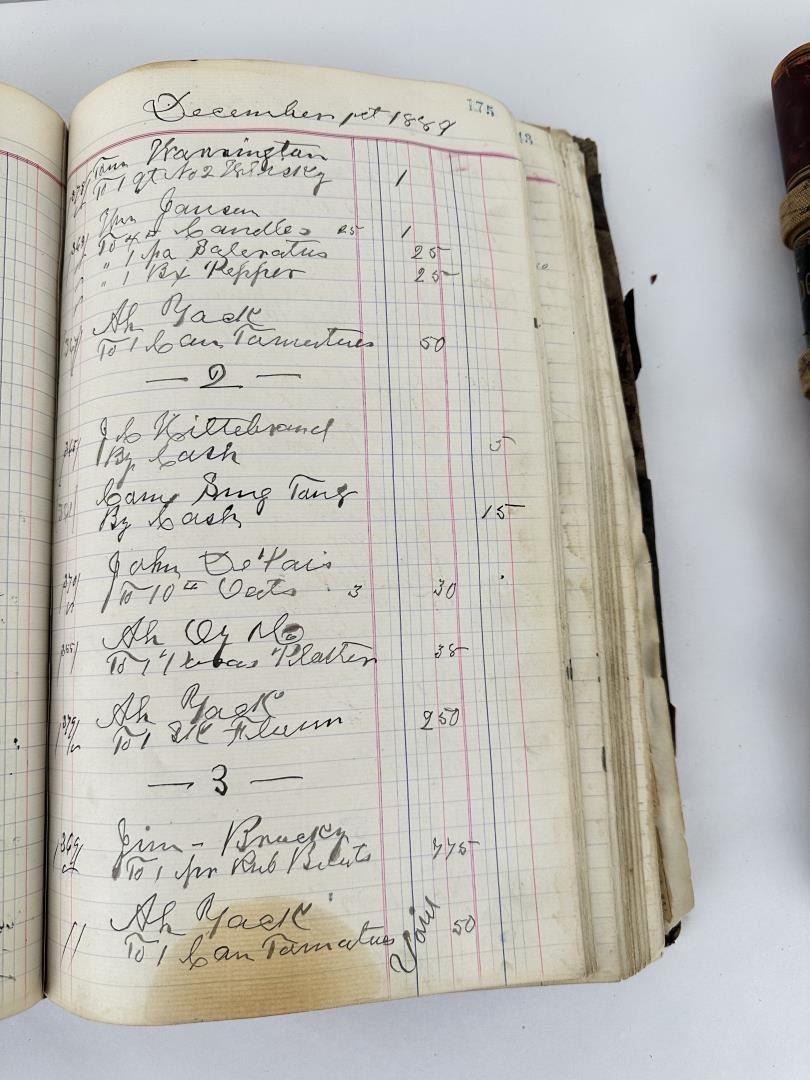 December 1st 1889 175
13
Tom Warrington
To 1 qt No 2 Whisky 1
Jansen
To 4# Candles 25 1
" 1 pa Saleratus 25
" 1 Bx Pepper 25
Ah Yack
To 1 Can Tamatues 50
— 2 —
J C Hiltebrand
By Cash 5
Cam Sing Tang
By Cash 15
John
To 10 # Oats 3 30
Ah Oy Mo
To 1 Plaster 38
Ah Yack
To 1 SK Flaum 250
— 3 —
Jim - Brucky
To 1 pr Rub Buts 775
Ah Yack
To 1 Can Tamatues 50
Paid